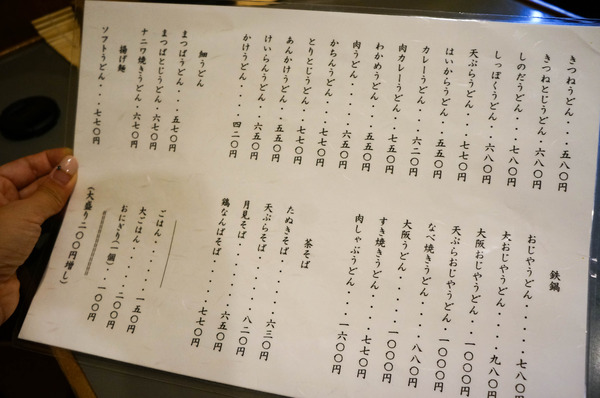 きつねうどん・・・・五八〇円
きつねとじうどん・六八〇円
しのだうどん・・・七八〇円
しっぽくうどん・・六八〇円
天ぷらうどん・・・七七〇円
はいからうどん・・五五〇円
カレーうどん・・・六二〇円
肉カレーうどん・・七五〇円
わかめうどん・・・五五〇円
肉うどん・・・・・六五〇円
かちんうどん・・・七七〇円
とりとじうどん・・七七〇円
あんかけうどん・・五五〇円
けいらんうどん・・六五〇円
かけうどん・・・・四二〇円
細うどん
まつばうどん・・・五七〇円
まつばとじうどん・六七〇円
ナニワ焼きうどん・六七〇円
揚げ麺
ソフトうどん・・・七七〇円
鉄鍋
おじやうどん・・・・七八〇円
大おじやうどん・・・九八〇円
大阪おじやうどん・・一〇〇〇円
天ぷらおじやうどん・一〇〇〇円
なべ焼きうどん・・・八八〇円
大阪うどん・・・・一〇〇〇円
すき焼きうどん・・・七七〇円
肉しゃぶうどん・・・一六〇〇円
茶そば
たぬきそば・・・・・六三〇円
天ぷらそば・・・・・八二〇円
月見そば・・・・・・六五〇円
鶏なんばそば・・・・七七〇円
ごはん・・・・・・一五〇円
大ごはん・・・・・二〇〇円
おにぎり(一個)・・一〇〇円
(大盛り二〇〇円増し)